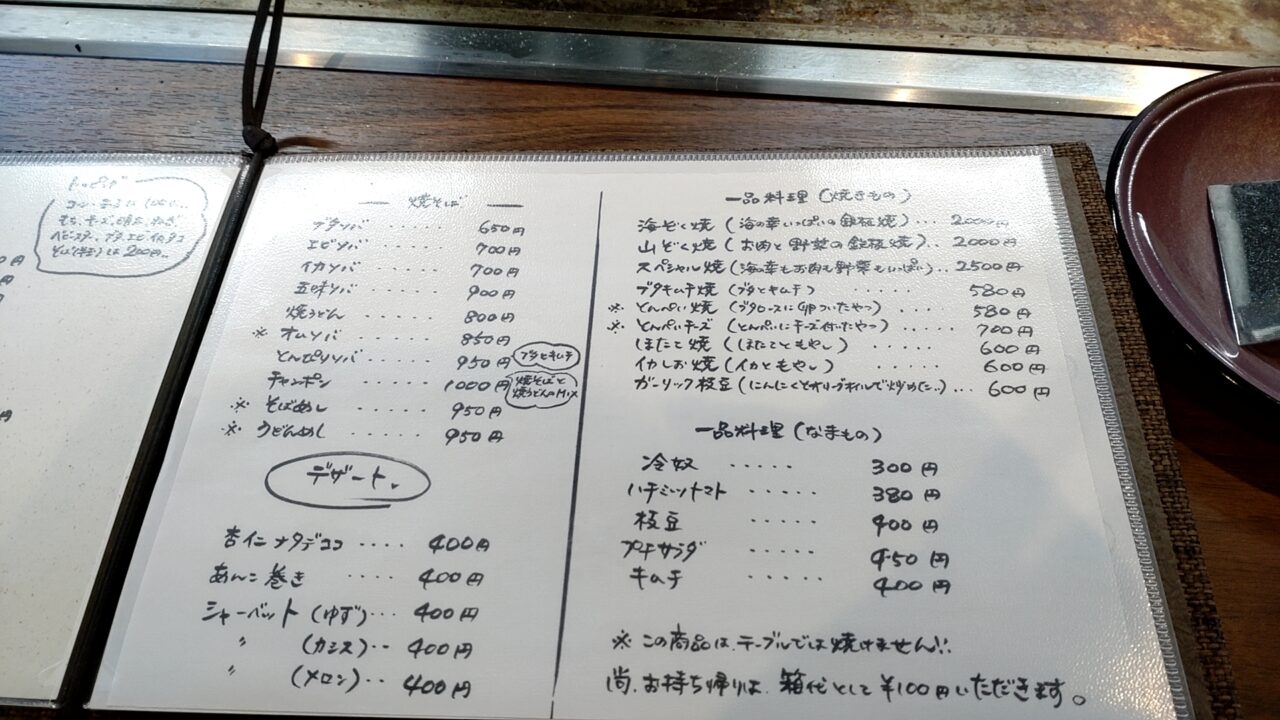 トッピング
もち、チーズ、明太、ねぎ
ベビースター、ブタ、エビ、イカ、タコ
そば(半玉)は200円..
― 焼そば ―
ブタソバ ..... 650円
エビソバ ..... 700円
イカソバ ..... 700円
五味ソバ ..... 900円
焼うどん ..... 800円
※ オムソバ ..... 850円
とんぴりソバ ..... 950円 ブタとキムチ
チャンポン ..... 1000円 焼そばと焼うどんのMIX
※ そばめし ..... 950円
※ うどんめし ..... 950円
デザート
杏仁ナタデココ .... 400円
あんこ巻き .... 400円
シャーベット (ゆず)... 400円
〃 (カシス).. 400円
〃 (メロン).. 400円
一品料理 (焼きもの)
海ぞく焼 (海の幸いっぱいの鉄板焼)... 2000円
山ぞく焼 (お肉と野菜の鉄板焼).. 2000円
スペシャル焼 (海の幸もお肉も野菜もいっぱい).. 2500円
ブタキムチ焼 (ブタとキムチ) ..... 580円
※ とんぺい焼 (ブタロースに卵ついたやつ) .... 580円
※ とんぺいチーズ (とんぺいにチーズ付いたやつ) ..... 700円
ほたて焼 (ほたてともやし) ..... 600円
イカしお焼 (イカともやし) ...... 600円
ガーリック枝豆 (にんにくとオリーブオイルで炒めた..)... 600円
一品料理 (なまもの)
冷奴 ..... 300円
ハチミツトマト ..... 380円
枝豆 ..... 400円
プチサラダ ..... 450円
キムチ ..... 400円
※ この商品は、テーブルでは焼けません!!
尚、お持ち帰りは、箱代として¥100円いただきます。